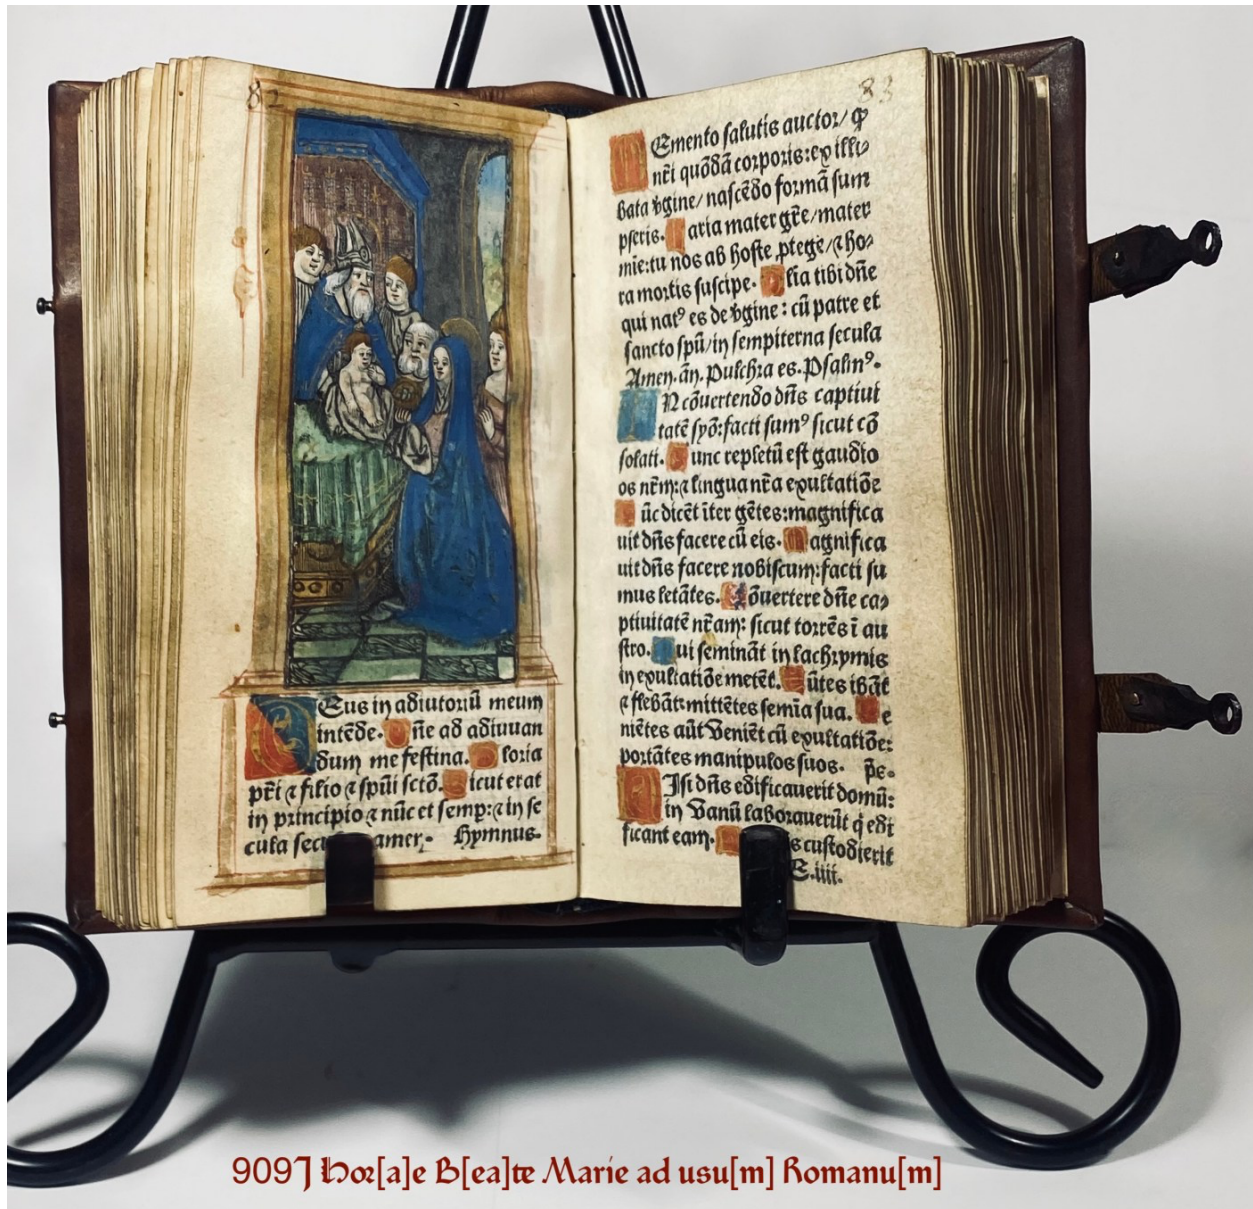 82
Deus in adiutoriū meum
intēde. Dn̄e ad adiuuan
dum me festina. Gloria
pr̄i ⁊ filio ⁊ spūi sctō. Sicut erat
in principio ⁊ nūc et semp: ⁊ in se
cula amen. Hymnus.
83
MEmento salutis auctor/ ꝙ
nr̄i quōdā corporis: ex illi
bata v̄gine/ nascēdo formā sum
pseris. Maria mater gr̄e/ mater
mie: tu nos ab hoste ꝓtege/ ⁊ ho
ra mortis suscipe. Gloria tibi dn̄e
qui natꝰ es de v̄gine: cū patre et
sancto spū/ in sempiterna secula
Amen. an̄. Pulchra es. Psalmꝰ.
IN cōuertendo dn̄s captiui
tatē syō: facti sumꝰ sicut cō
solati. Tunc repletū est gaudio
os nr̄m: ⁊ lingua nr̄a exultatiōe
Tūc dicēt īter gētes: magnifica
uit dn̄s facere cū eis. Magnifica
uit dn̄s facere nobiscum: facti su
mus letātes. Cōuertere dn̄e ca
ptiuitatē nr̄am: sicut torrēs ī au
stro. Qui semināt in lachrymis
in exultatiōe metēt. Eūtes ibāt
⁊ flebāt: mittētes semīa sua. Ve
niētes aūt veniēt cū exultatiōe:
portātes manipulos suos. ps̄.
NIsi dn̄s edificauerit domū:
in vanū laborauerūt q̇ edi
ficant eam. custodierit
E.iiii.
9097 Hor[a]e B[ea]te Marie ad usu[m] Romanu[m]